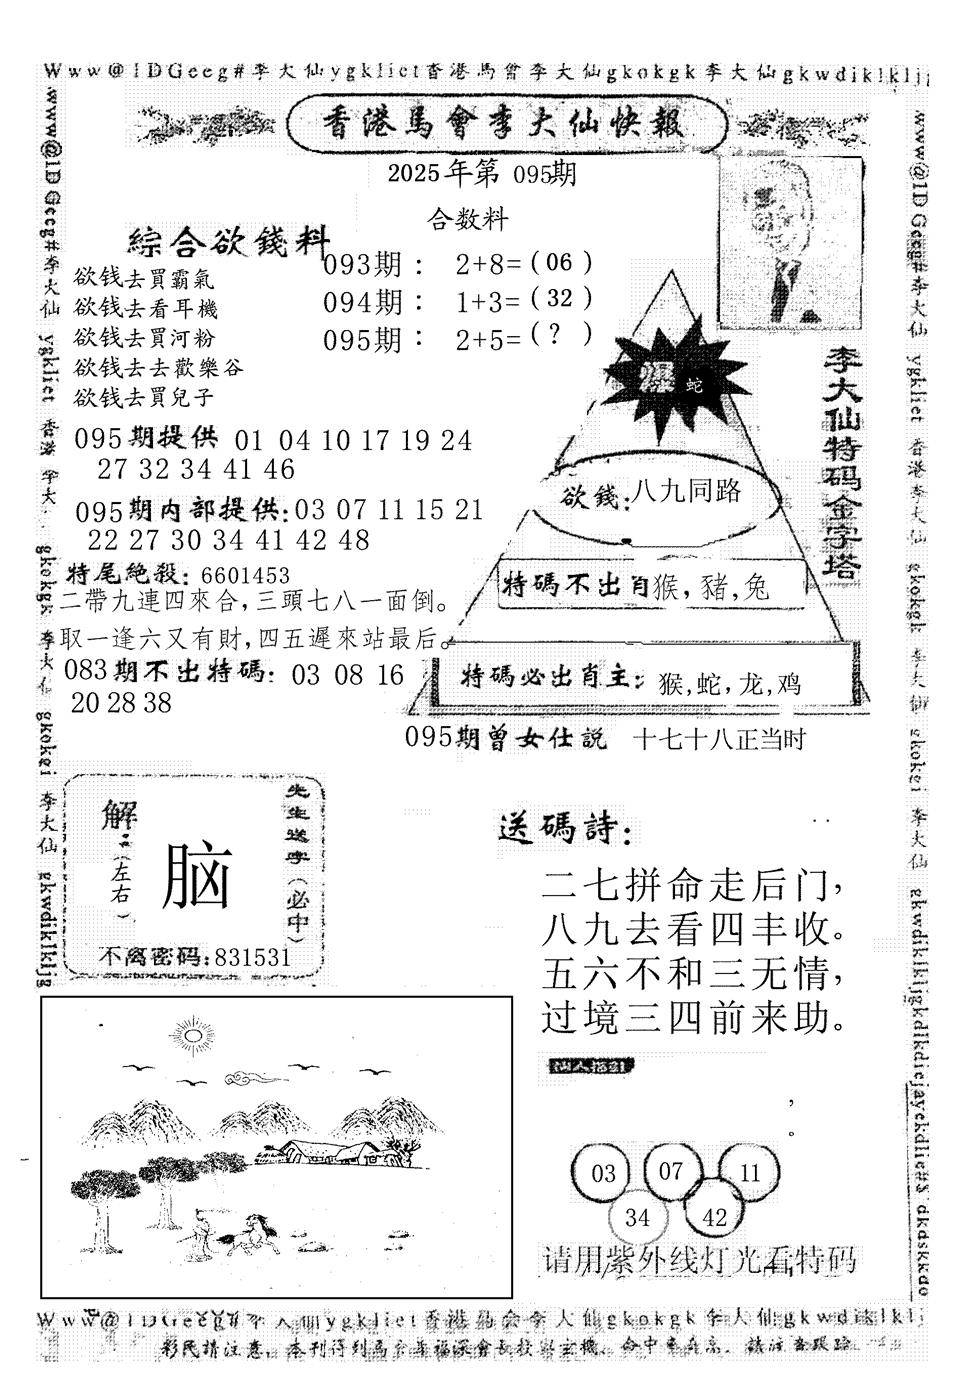 Www@1DGeeg#李大仙ygkliet香港馬會李大仙gkokgk李大仙gkwdiklkljg
香港馬會李大仙快報
2025年第 095期
合数料
綜合欲錢料
欲钱去買霸氣
欲钱去看耳機
欲钱去買河粉
欲钱去去歡樂谷
欲钱去買兒子
093期： 2+8=(06)
094期： 1+3=(32)
095期： 2+5=(?)
095期提供 01 04 10 17 19 24
27 32 34 41 46
095期内部提供:03 07 11 15 21
22 27 30 34 41 42 48
特尾絶殺: 6601453
二帶九連四來合,三頭七八一面倒。
取一逢六又有財,四五遲來站最后。
083期不出特碼: 03 08 16
20 28 38
李大仙特码金字塔
爆 蛇
欲錢:八九同路
特碼不出肖猴,豬,兔
特碼必出肖主: 猴,蛇,龙,鸡
095期曾女仕説 十七十八正当时
解
(左右)
脑
先生送字(必中)
不离密码:831531
送碼詩:
二七拼命走后门,
八九去看四丰收。
五六不和三无情,
过境三四前来助。
,
。
03 07 11
34 42
请用紫外线灯光看特码
www@1DGeeg#李大仙 ygkliet 香港 李大 gkokgk 李大仙 gkokei 李大仙 gkwdiklkljg
www@1DGeeg#李大仙 ygkliet 香港李大仙 gkokgk 李大仙 gkokei 李大仙 gkwdiklkljgkdlkdiejayekdlie#$ dkdskkdo
Www@1DGeeg#李大仙ygkliet香港马会李大仙gkokgk李大仙gkwdiklklj
彩民請注意,本刊得到馬會